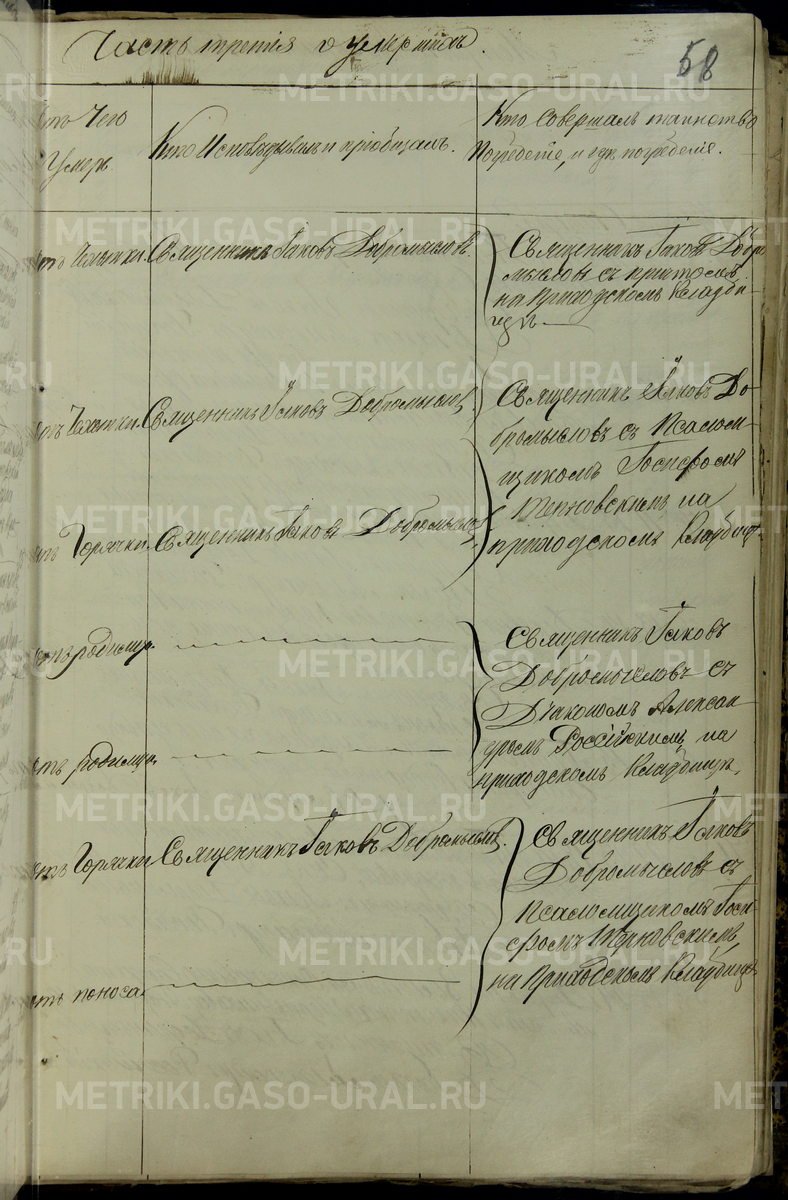 Часть третія о умершихъ.
58
отъ Чего
Умеръ
Кто Исповѣдывалъ и пріобщалъ.
Кто Совершалъ таинство
Погребеніе, и гдѣ погребеніе.
отъ
Священникъ Іаковъ Добромысловъ.
Священникъ Іаковъ Добро
мысловъ съ причтомъ
на Приходскомъ Кладби-
щѣ
отъ Чахотки.
Священникъ Іаковъ Добромысловъ.
Священникъ Іаковъ До-
бромысловъ съ Псалом-
щикомъ Іосифомъ
Терновскимъ на
приходскомъ Кладбищѣ.
отъ Горячки.
Священникъ Іаковъ Добромысловъ.
отъ родимц.
Священникъ Іаковъ
Добромысловъ съ
Діакономъ Алексан-
дромъ на
приходскомъ Кладбищѣ.
отъ родимц.
отъ Горячки
Священникъ Іаковъ Добромысловъ.
Священникъ Іаковъ
Добромысловъ съ
Псаломщикомъ Іоси-
фомъ Терновскимъ,
на Приходскомъ Кладбищѣ
отъ поноса.
METRIKI.GASO-URAL.RU